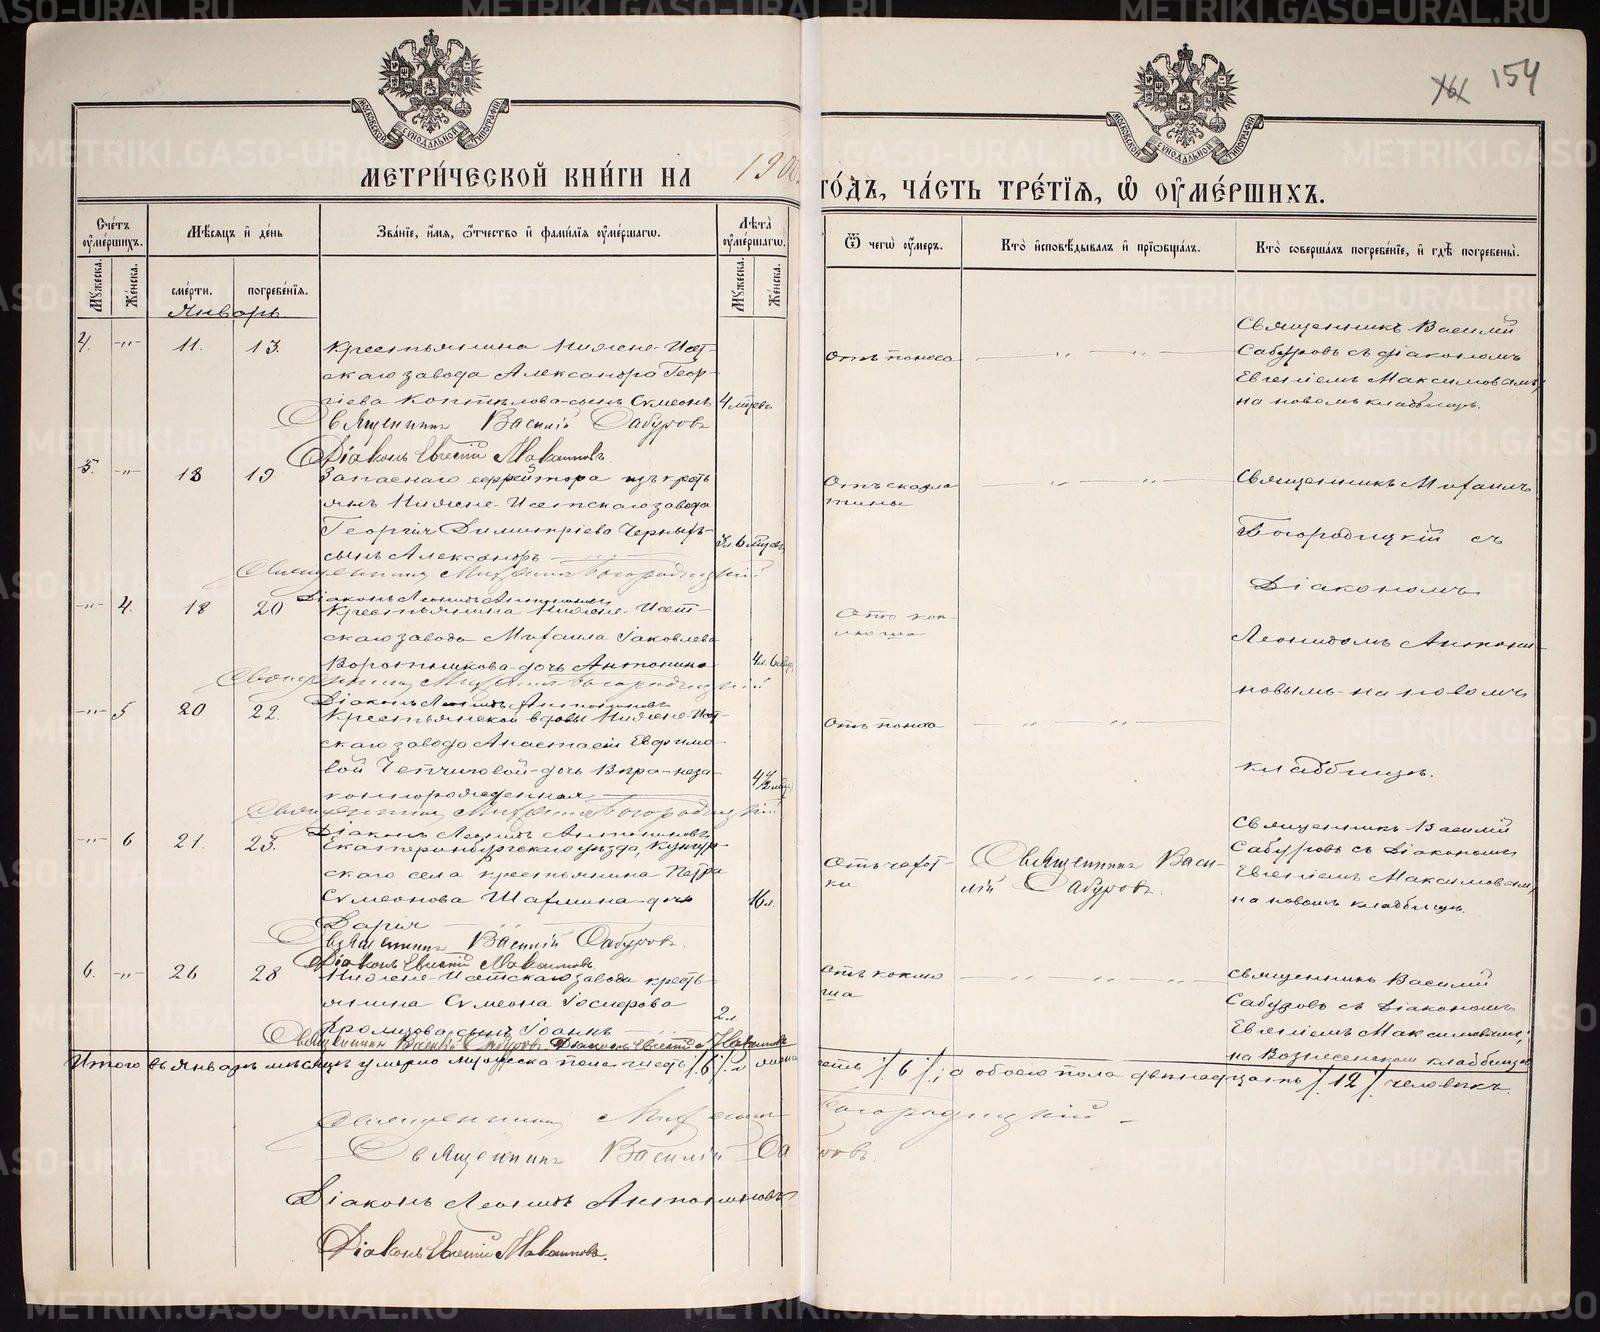 154
МОСКОВСКОЙ СѴНОДАЛЬНОЙ ТИПОГРАФІИ
МОСКОВСКОЙ СѴНОДАЛЬНОЙ ТИПОГРАФІИ
МЕТРИ́ЧЕСКОЙ КНИ́ГИ НА 1900
ГО́ДЪ, ЧА́СТЬ ТРЕ́ТІѦ, Ѡ ОУМЕ́РШИХЪ.
Сче́тъ оуме́ршихъ.
Мѣ́сѧцъ и де́нь
Зва́нїе, и́мѧ, ѻ́тчество и фами́лїѧ оуме́ршагѡ.
Лѣ́та оуме́ршагѡ.
Ѿ чегѡ̀ оу́меръ.
Кто̀ исповѣ́дывалъ и прїѡбща́лъ.
Кто̀ соверша́лъ погребе́нїе, и гдѣ̀ погребены̀.
Мужеска.
Женска.
сме́рти.
погребе́нїѧ.
Мужеска.
Женска.
Январь.
4. -"- 11. 13. Крестьянина Нижне-Исет-
скаго завода Александра Геор-
гіева Коптѣлова-сынъ Сѵмеонъ 4 мѣсяц
Священникъ Василій Сабуровъ
Діаконъ Евгеній Максимовъ
Отъ поноса
Священникъ Василій
Сабуровъ съ діакономъ
Евгеніемъ Максимовымъ,
на новомъ кладбищѣ.
5. -"- 18 19 Запаснаго ефрейтора изъ кресть
янъ Нижне-Исетскаго завода
Георгія Димитріева Черныхъ-
сынъ Александръ
Священникъ Михаилъ Богородицкій
Діаконъ Леонидъ Антониновъ
Отъ скарла
тины
Священникъ Михаилъ
Богородицкій съ
Діакономъ
Леонидомъ Антони-
новымъ-на новомъ
кладбищѣ.
-"- 4. 18 20 Крестьянина Нижне-Исет-
скаго завода Михаила Іаковлева
Воротникова-дочь Антонина
Священникъ Михаилъ Богородицкій
Діаконъ Леонидъ Антониновъ
Отъ кок-
люша
-"- 5 20 22. Крестьянской вдовы Нижне-Исет-
скаго завода Анастасіи Евфимо-
вой -дочь Вѣра-неза-
коннорожденная
Священникъ Михаилъ Богородицкій
Діаконъ Леонидъ Антониновъ
Отъ поноса
-"- 6 21. 23. Екатеринбургскаго уѣзда,
скаго села крестьянина Петра
Сѵмеонова -дочь
Дарія 16 л.
Священникъ Василій Сабуровъ.
Діаконъ Евгеній Максимовъ.
Отъ чахот-
ки
Священникъ Васи-
лій Сабуровъ.
Священникъ Василій
Сабуровъ съ Діакономъ
Евгеніемъ Максимовымъ,
на новомъ кладбищѣ.
6. -"- 26 28 Нижне-Исетскаго завода кресть-
янина Сѵмеона Іосифова
сынъ Іоаннъ 2 л.
Священникъ Василій Сабуровъ Діаконъ Евгеній Максимовъ
Отъ коклю
ша
Священникъ Василій
Сабуровъ съ Діакономъ
Евгеніемъ Максимовымъ,
на Вознесенскомъ кладбищѣ
Итого въ январѣ мѣсяцѣ умерло мужеска пола шесть /6/,
шесть /6/; а обоего пола двѣнадцать /12/ человѣкъ.
Священникъ Михаилъ Богородицкій
Священникъ Василій Сабуровъ.
Діаконъ Леонидъ Антониновъ
Діаконъ Евгеній Максимовъ.
METRIKI.GASO-URAL.RU